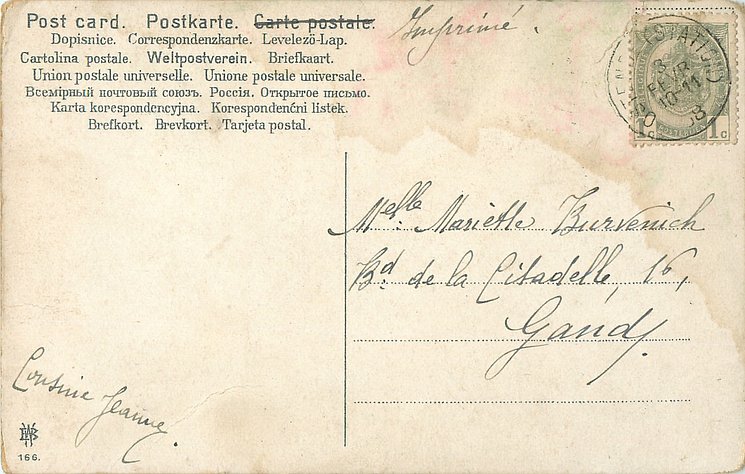 Post card. Postkarte. Carte postale.
Dopisnice. Correspondenzkarte. Levelező-Lap.
Cartolina postale. Weltpostverein. Briefkaart.
Union postale universelle. Unione postale universale.
Всемірный почтовый союзъ. Россія. Открытое письмо.
Karta korespondencyjna. Korespondenčni listek.
Brefkort. Brevkort. Tarjeta postal.
Imprimé.
8
FEVR
10-11
08
1c 1c
Melle. Mariette Burvenich
Bd. de la Citadelle, 16,
Gand.
Cousine Jeanne.
166.